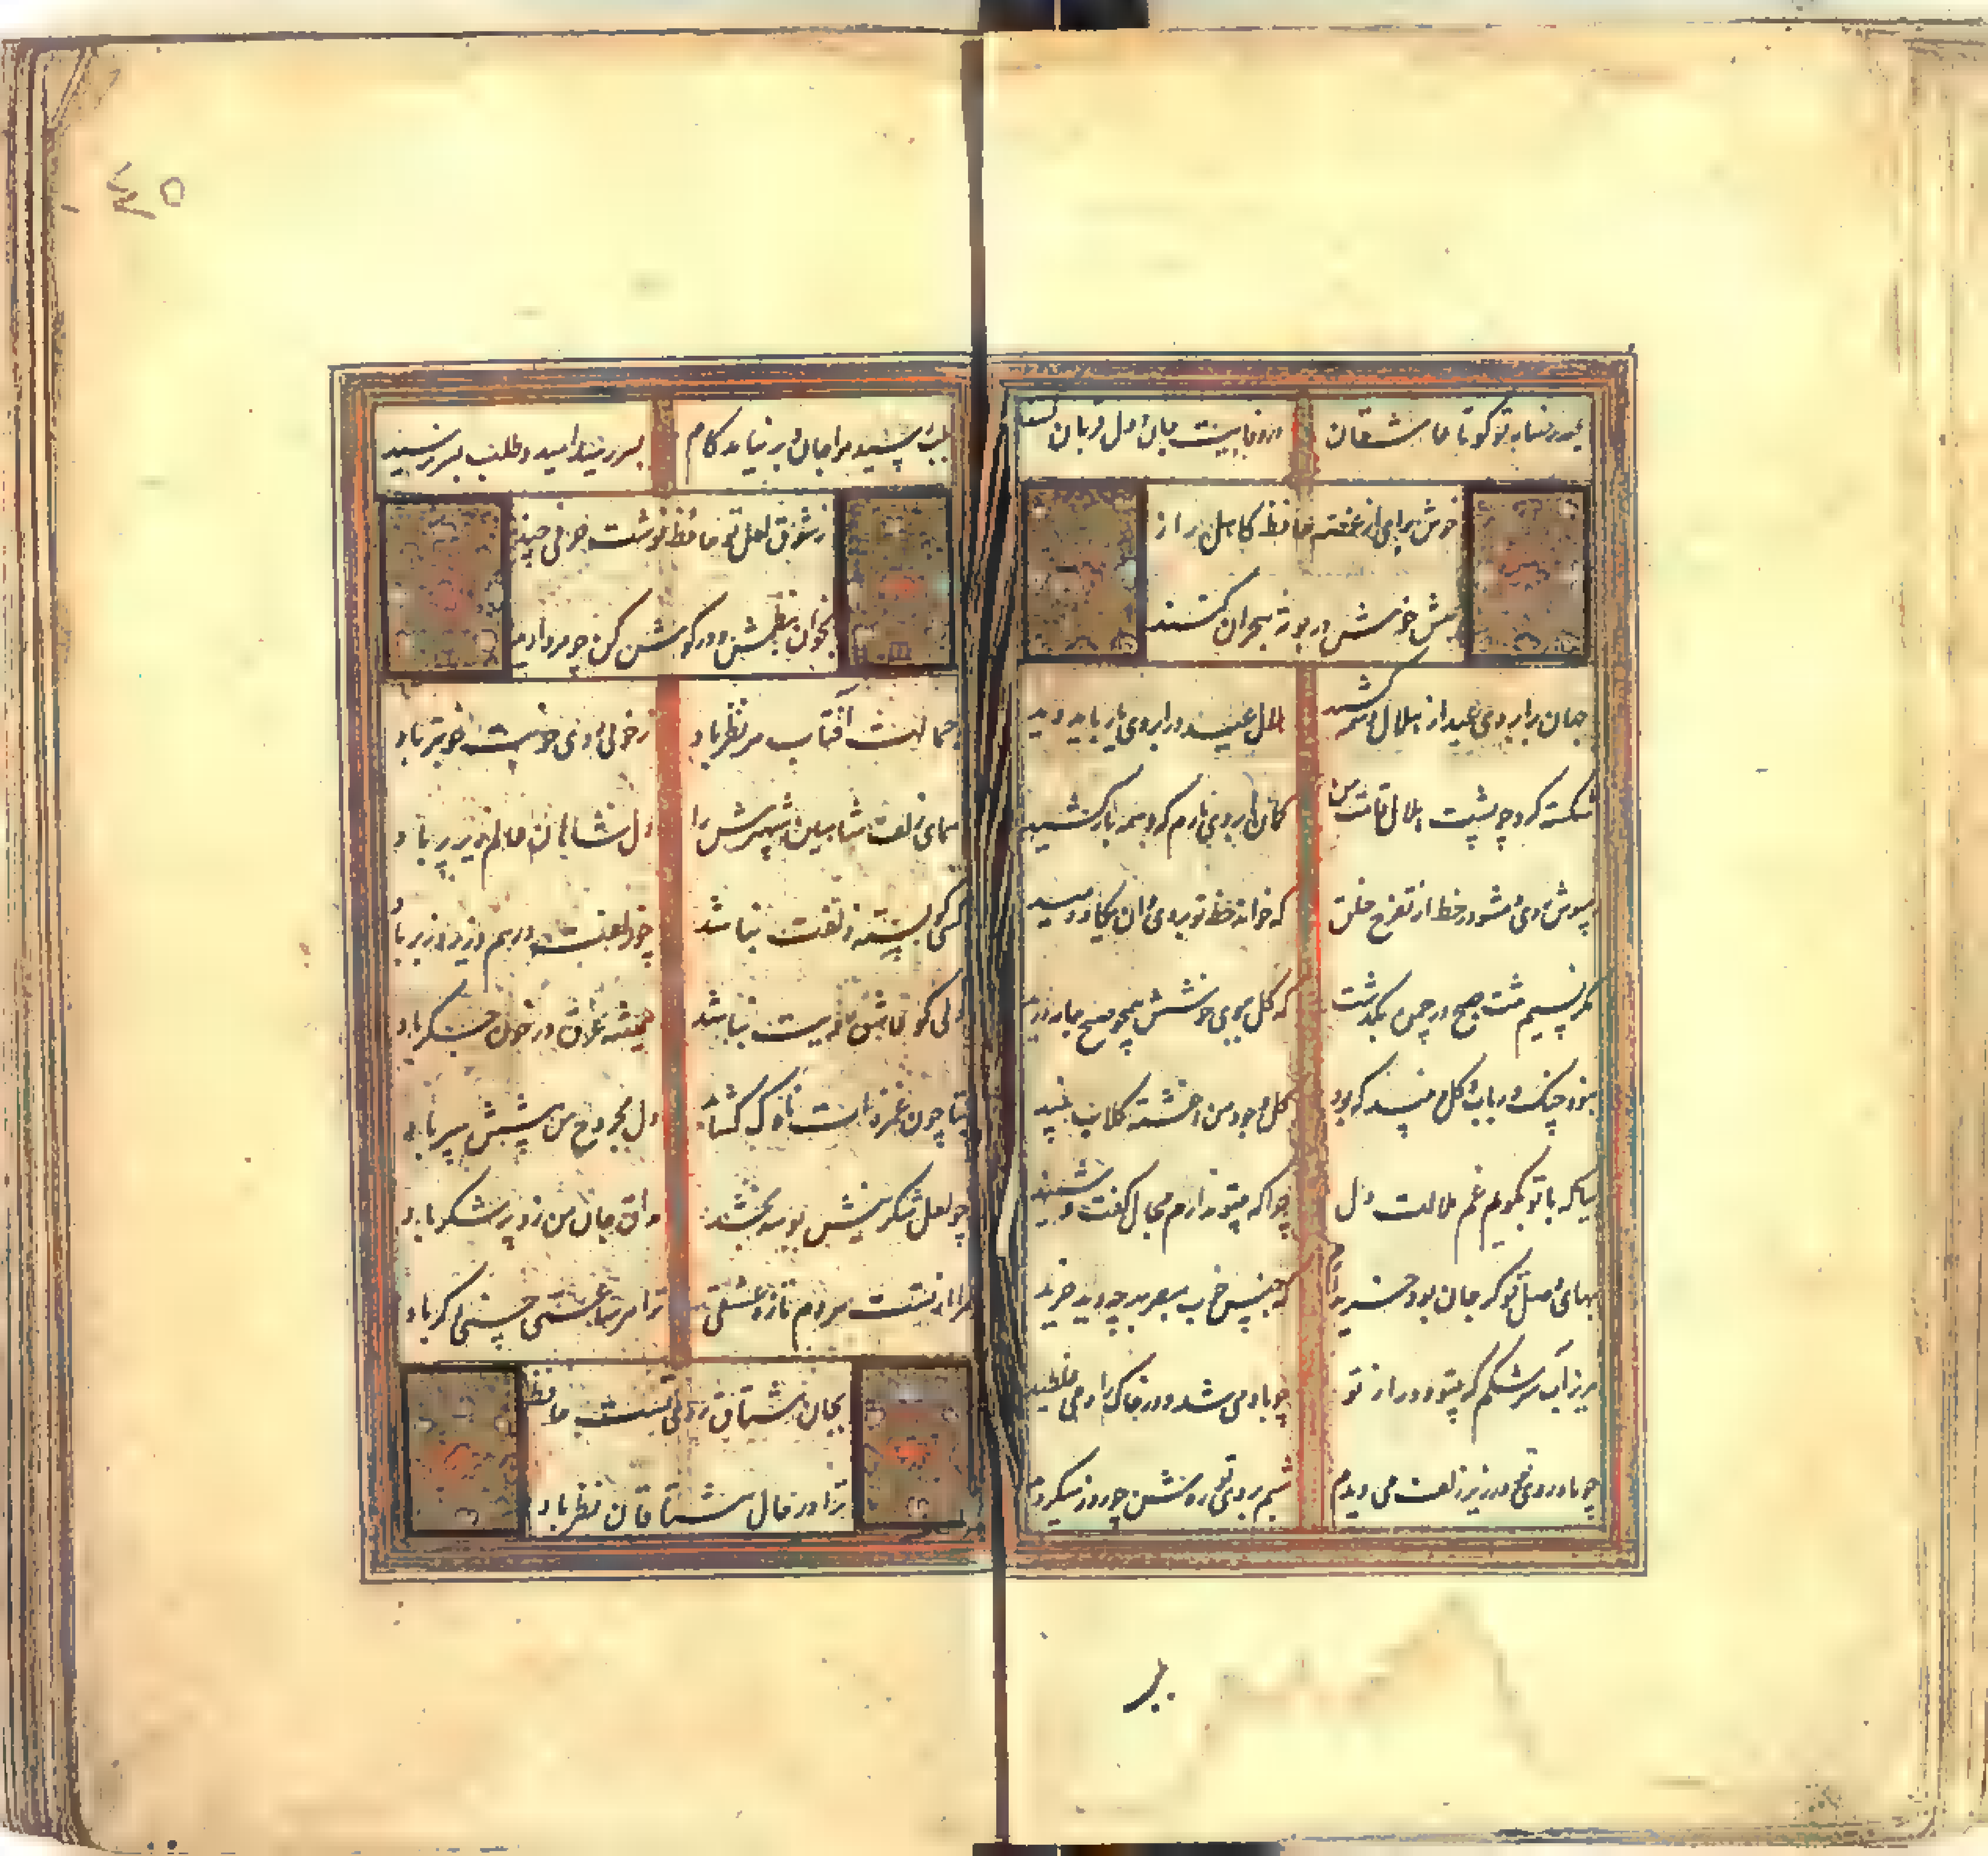 عید رخسار تو کو تا عاشقان
در وفایت جان و دل قربان کنند
خوش برای از غصه حافظ کاهل راز
عیش خوش در بوته هجران کنند
جهان بر ابروی عید از هلال وسمه کشید
هلال عید در ابروی یار باید دید
شکسته کرد چو پشت هلال قامت من
کمان ابروی یارم که وسمه باز کشید
مپوش روی و مشو در خط از تفرج خلق
که خواند خط تو بر روی وان یکاد و دمید
مگر نسیم تنت صبح در چمن بگذشت
که گل ببوی خوشش همچو صبح جامه درید
نبود چنک و رباب و گل و نبید که بود
گل وجود من اغشته گلاب و نبید
بیا که با تو بگویم غم ملالت دل
چرا که بیتو ندارم مجال گفت و شنید
بهای وصل تو گر جان بود خریدارم
که جنس خوب مبصر بهر چه دید خرید
مریز آب سرشکم که بیتو دور از تو
چو باد می شد و در خاک راه می غلطید
چو ماه روی تو در زیر زلف می دیدم
شبم بروی تو روشن چو روز میگردید
بلب رسید مرا جان و بر نیامد کام
بسر رسید امید و طلب بسر نرسید
ز شوق لعل تو حافظ نوشت حرفی چند
بخوان ز نظمش و در گوش کن چو مروارید
جمالت آفتاب هر نظر باد
ز خوبی روی خوبت خوبتر باد
همای زلف شاهین شهپرش را
دل شاهان عالم زیر پر باد
کسی کو بسته زلفت نباشد
چو زلفت درهم و زیر و زبر باد
دلی کو عاشق رویت نباشد
همیشه غرق در خون جگر باد
بتا چون غمزه ات ناوک گشاید
دل مجروح من پیشش سپر باد
چو لعل شکرینش بوسه بخشد
مذاق جان من زو پر شکر باد
مرا از تست هر دم تازه عشقی
ترا هر ساعتی حسنی دگر باد
بجان مشتاق روی تست حافظ
ترا در حال مشتاقان نظر باد